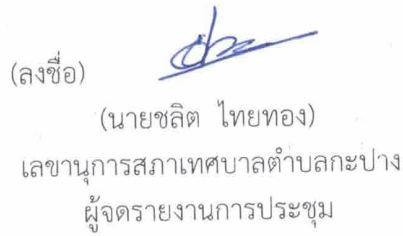 (ลงชื่อ)
(นายชลิต ไทยทอง)
เลขานุการสภาเทศบาลตำบลกะปาง
ผู้จดรายงานการประชุม